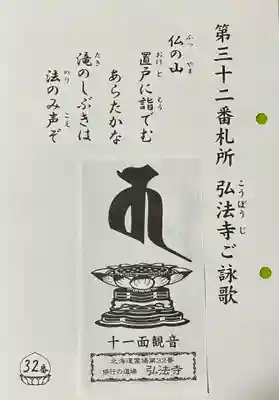 第三十二番札所 弘法寺ご詠歌
こうぼうじ
仏の山
ぶつ やま
置戸に詣でむ
おけ と もう
あらたかな
滝のしぶきは
たき
法のみ声ぞ
のり こえ
十一面観音
北海道霊場第32番
修行の道場 弘法寺
32番